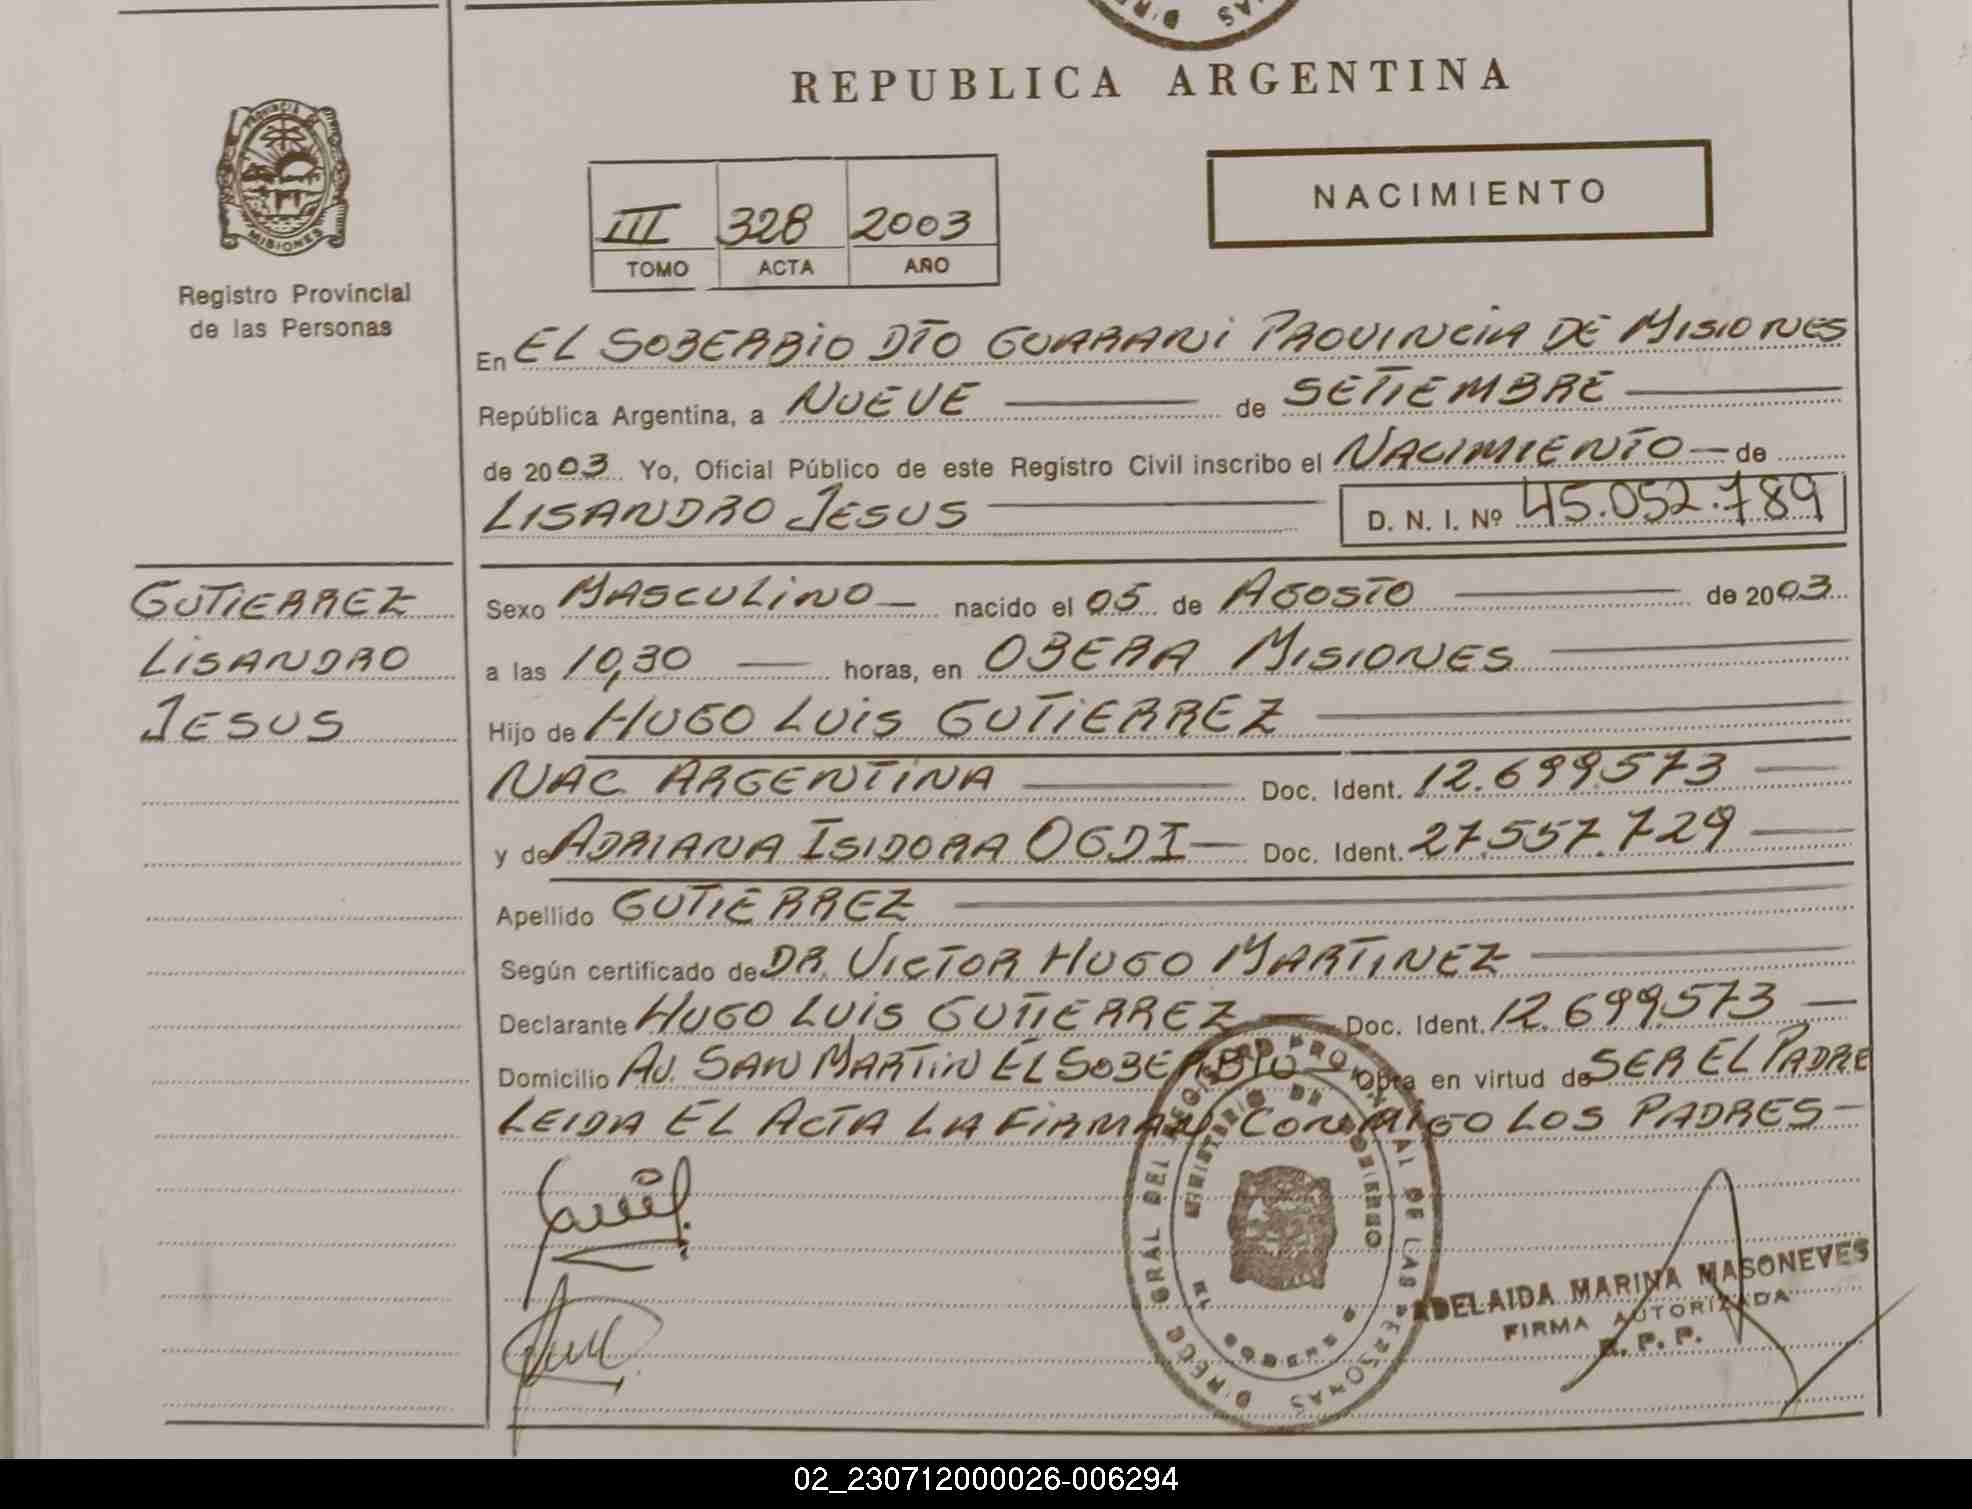 REPUBLICA ARGENTINA
PROVINCIA DE
MISIONES
Registro Provincial
de las Personas
III 328 2003
TOMO ACTA AÑO
NACIMIENTO
En EL SOBERBIO DTO GUARANI PROVINCIA DE MISIONES
República Argentina, a NUEVE de SETIEMBRE
de 2003 Yo, Oficial Público de este Registro Civil inscribo el NACIMIENTO de
LISANDRO JESUS D. N. I. Nº 45.052.789
GUTIERREZ
LISANDRO
JESUS
Sexo MASCULINO nacido el 05 de AGOSTO de 2003
a las 10,30 horas, en OBERA MISIONES
Hijo de HUGO LUIS GUTIERREZ
NAC. ARGENTINA Doc. Ident. 12.699.573
y de ADRIANA ISIDORA OGDI Doc. Ident. 27.557.729
Apellido GUTIERREZ
Según certificado de DR. VICTOR HUGO MARTINEZ
Declarante HUGO LUIS GUTIERREZ Doc. Ident. 12.699.573
Domicilio AV. SAN MARTIN EL SOBERBIO Obra en virtud de SER EL PADRE
LEIDA EL ACTA LA FIRMAN CONMIGO LOS PADRES
DIRECC. GRAL DEL REGISTRO PROVINCIAL DE LAS PERSONAS
MINISTERIO DE GOBIERNO
ADELAIDA MARINA MASONEVES
FIRMA AUTORIZADA
R. P. P.
02_230712000026-006294